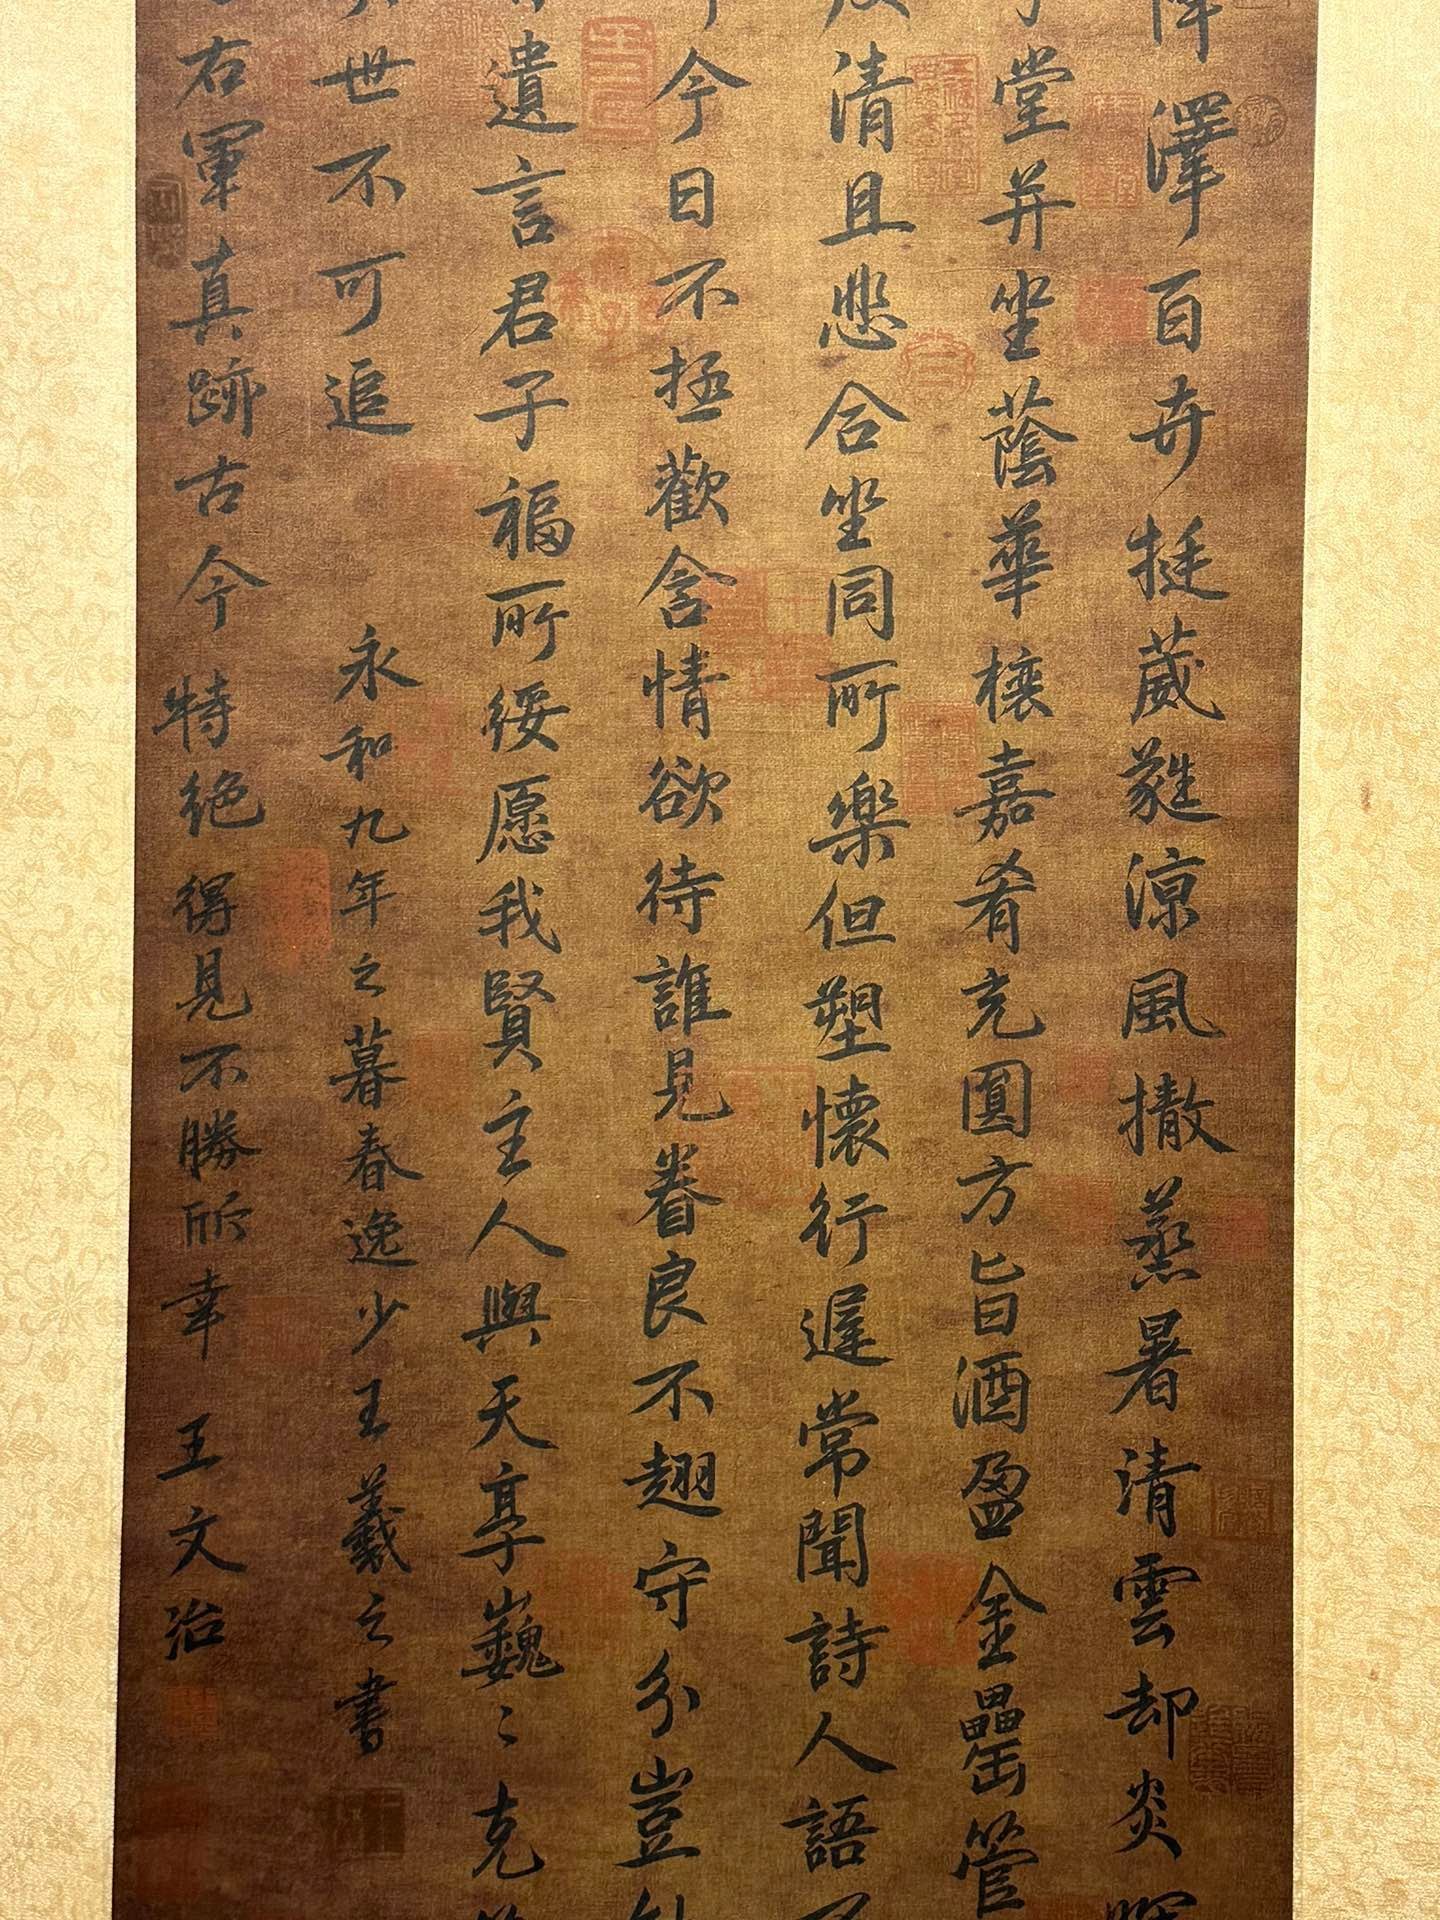 澤百卉挺葳蕤涼風撤蒸暑清雲却炎暉
堂并坐蔭華榱嘉肴充圓方旨酒盈金罍管
清且悲合坐同所樂但愬懷行遲常聞詩人語不
今日不極歡含情欲待誰見眷良不翅守分豈能
遺言君子福所綏愿我賢主人與天享巍〻克
世不可追
永和九年之暮春逸少王羲之書
右軍真跡古今特絕得見不勝所幸 王文治